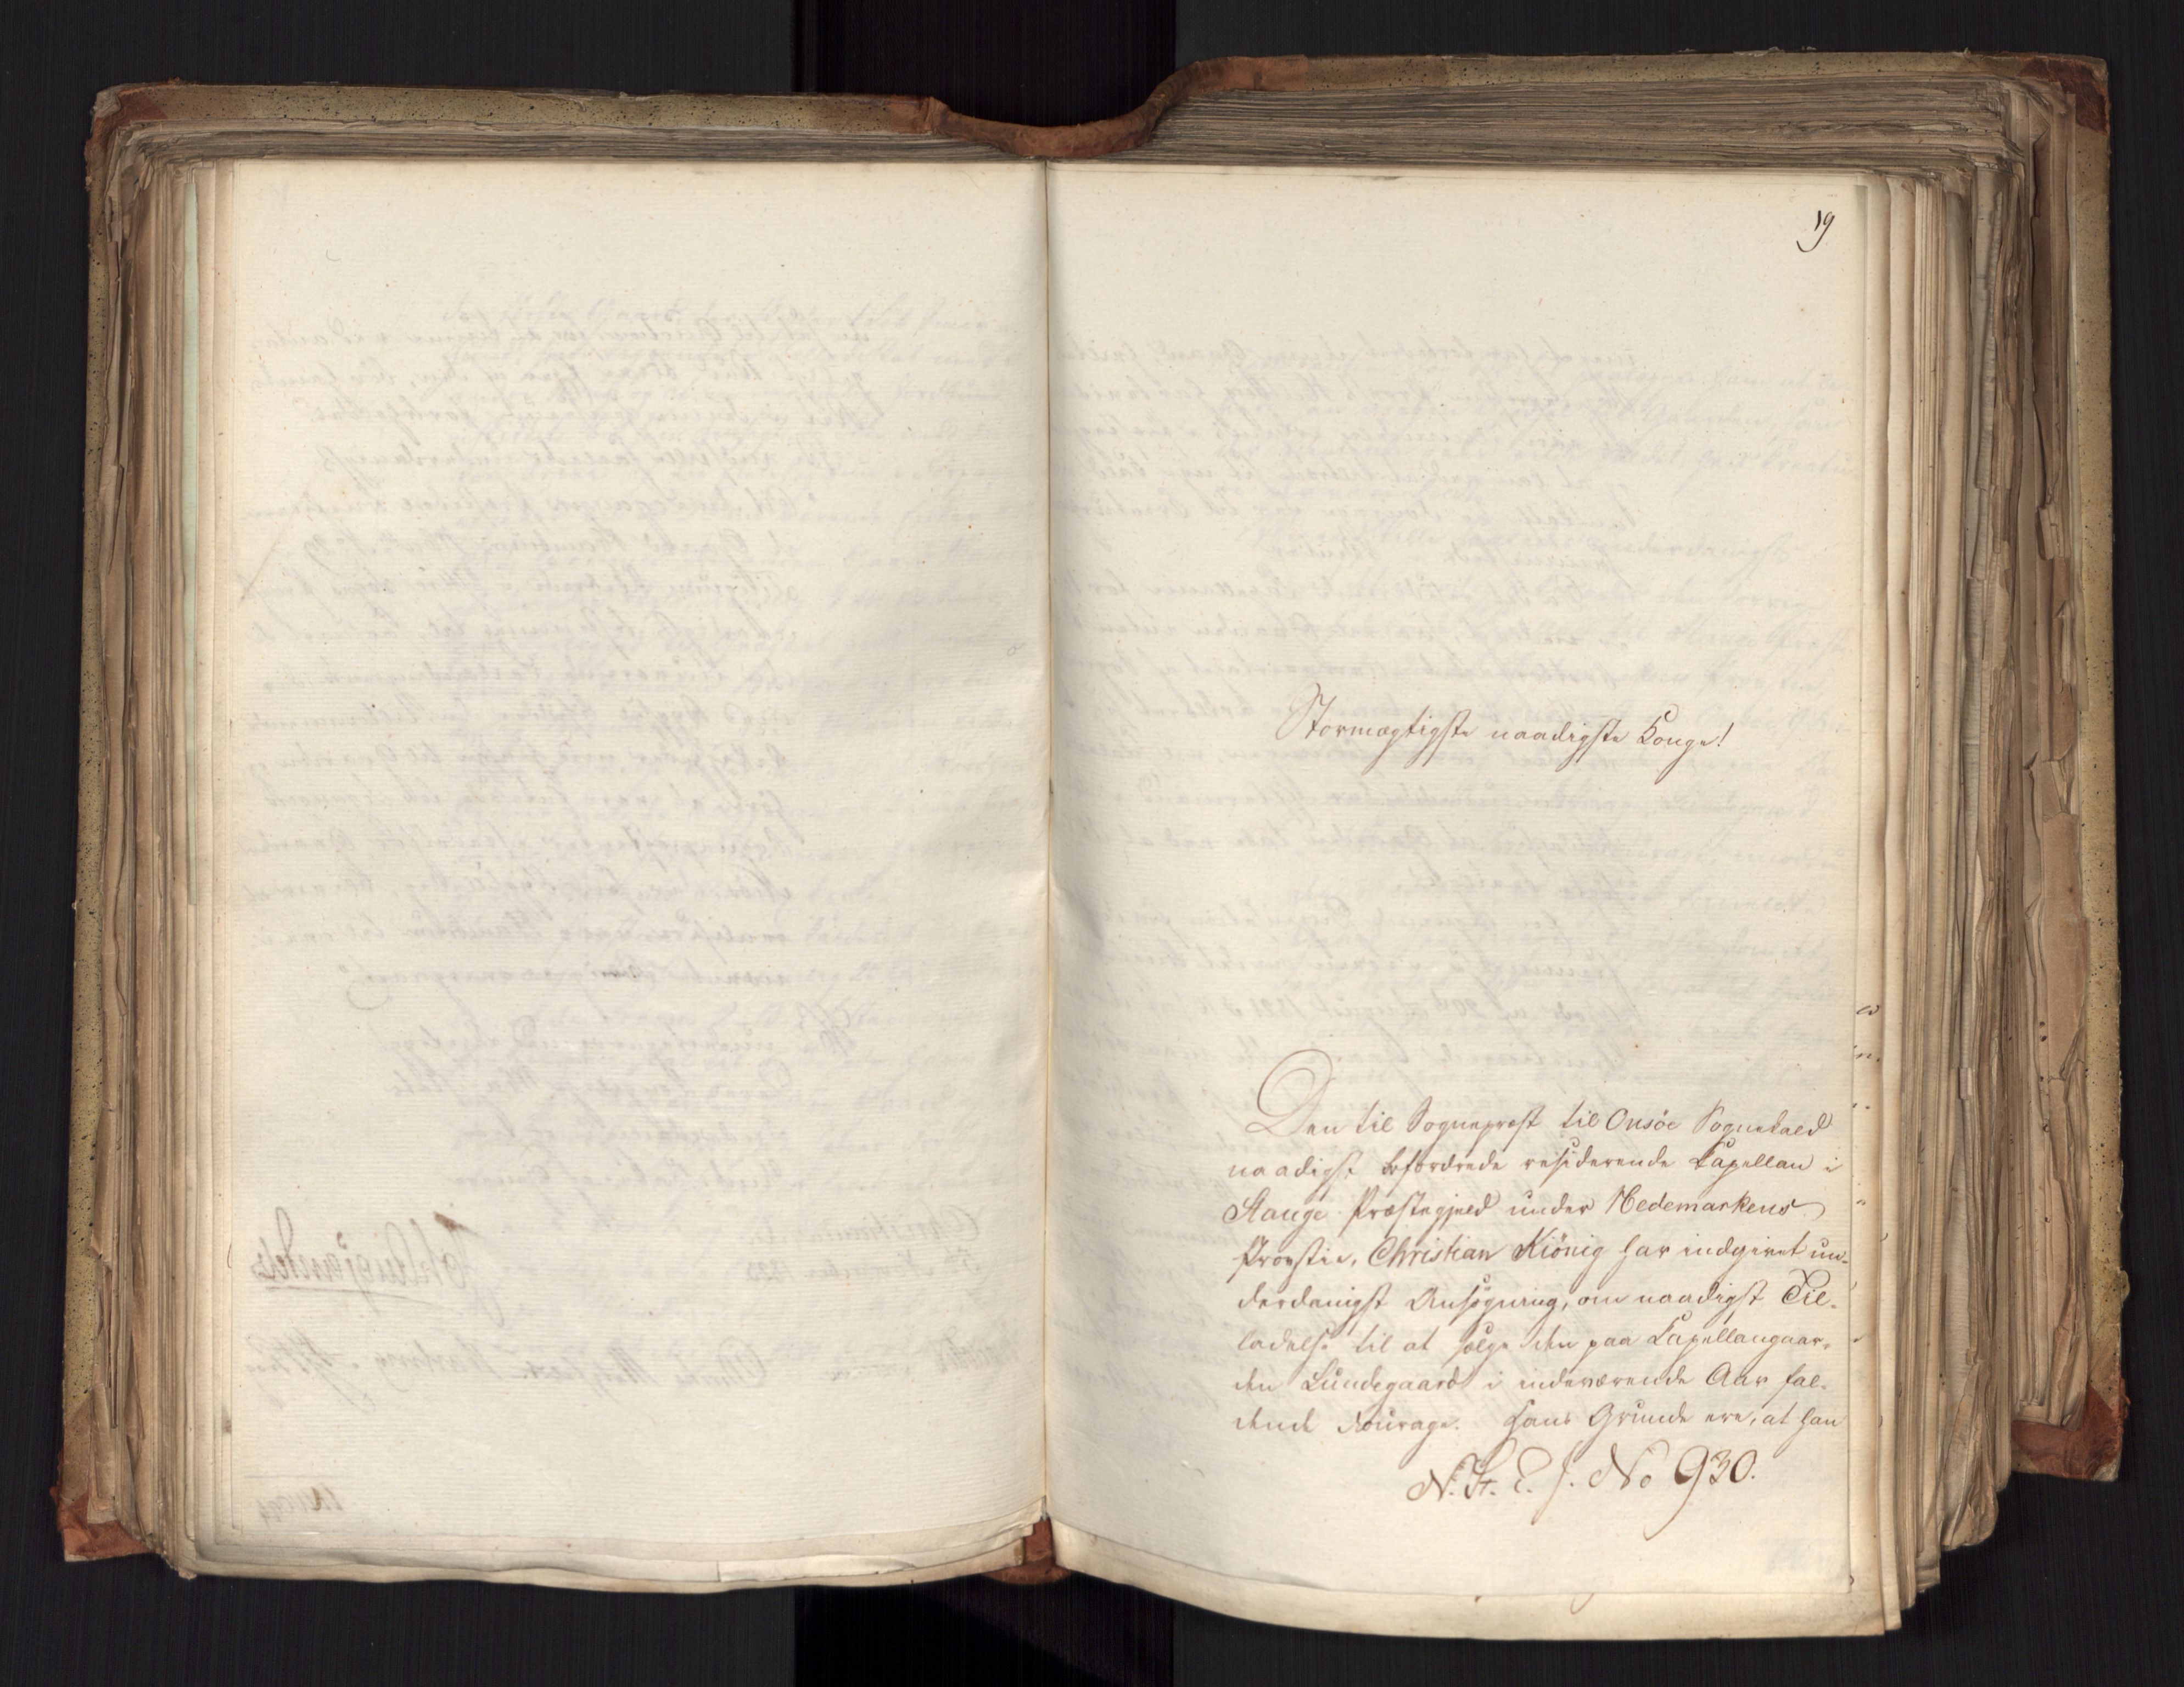 19
Stormægtigste naadigste Konge!
Den til Sognepræst til Onsöe Sognekald
naadigst befordrede residerende Capellan i
Stange Præstegjeld under Hedemarkens
Provstie, Christian Kiönig har indgivet un-
derdanigst Ansögning, om naadigst Til-
ladelse til at sælge den paa Capellangaar-
den Lundegaard i indeværende Aar fal-
dende Fourage. Hans Grunde ere, at han
No 930.